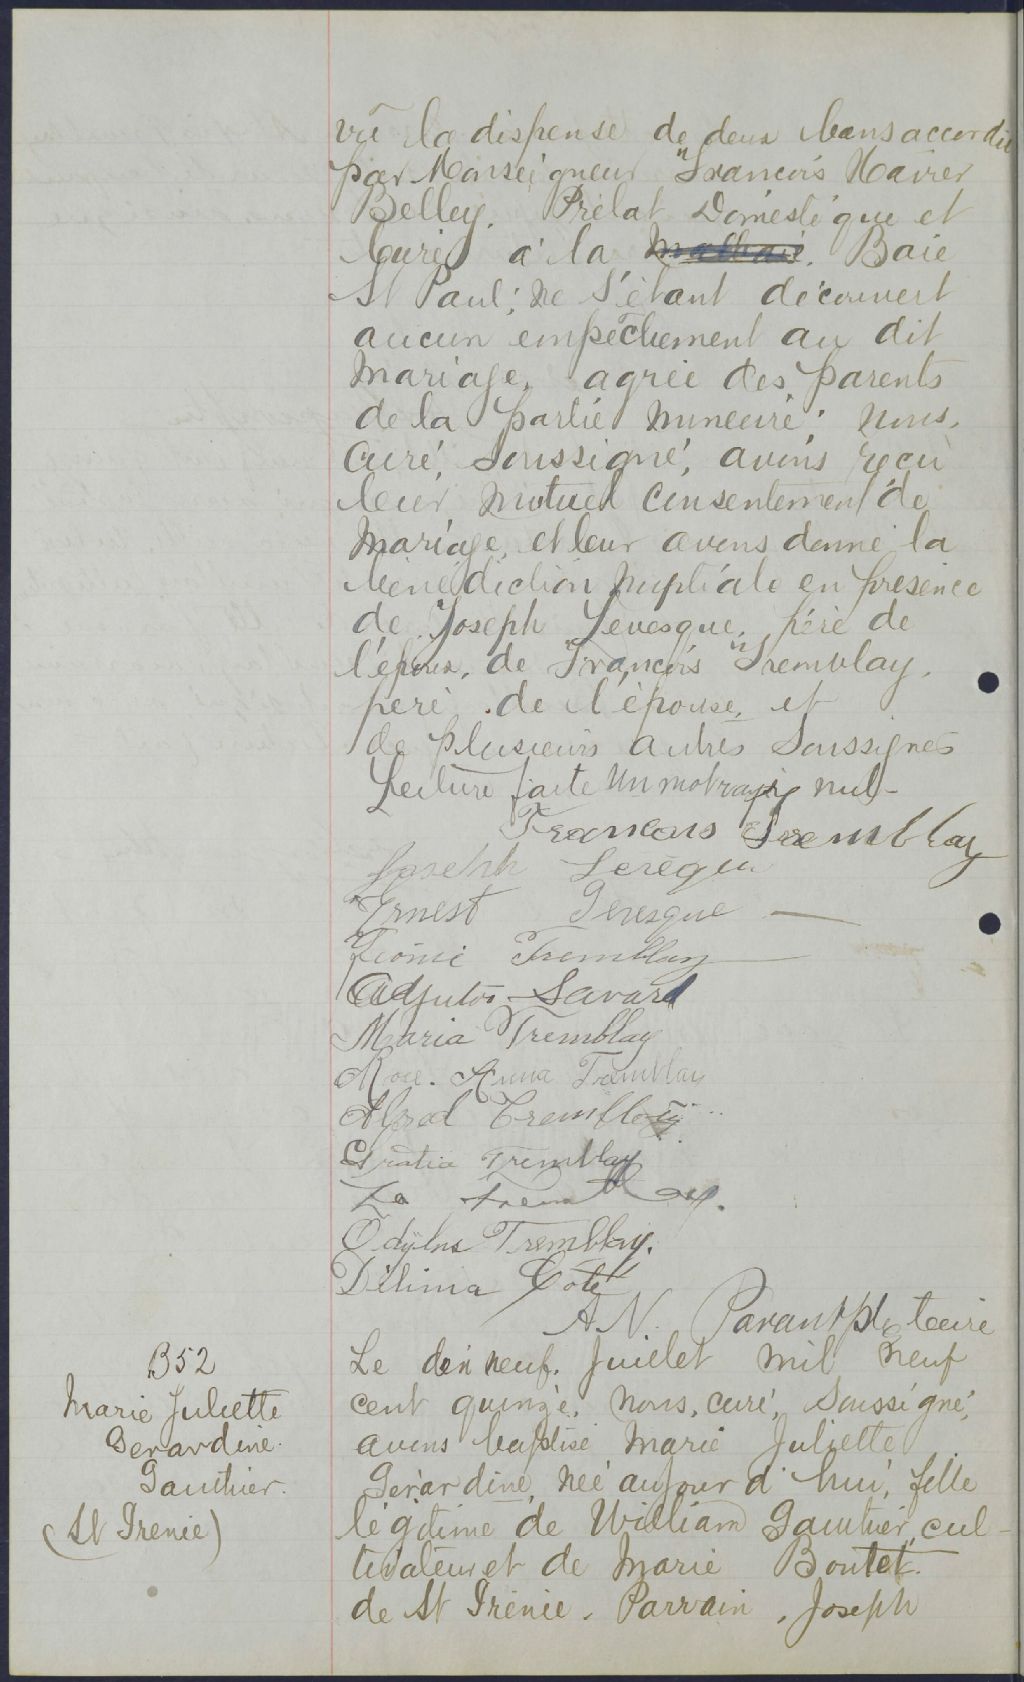 vu la dispense de deux bans accordée
par Monseigneur François Xavier
Belley, Prélat Doméstique et
Curé à la Malbaie. Baie
St Paul; ne s'étant découvert
aucun empêchement au dit
Mariage, agrée des parents
de la partie mineure; nous,
Curé, Soussigné, avons reçu
leur mutuel consentement de
Mariage, et leur avons donné la
bénédiction nuptiale en présence
de Joseph Levesque, père de
l'époux, de François Tremblay,
père de l'épouse, et
de plusieurs autres Soussignés
Lecture faite Un mot rayé nul-
Francois Tremblay
Joseph
Ernest
Tremblay
Adjutor Savard
Maria Tremblay
Rose. Anna Tremblay
Alfred Tremblay
Gratia Tremblay
Tremblay.
Tremblay.
Délima Côté
A. N. Parant ptre Curé
B52
Marie Juliette
Gerardine
Gauthier.
(St Irenée)
Le dix neuf, Juillet mil neuf
cent quinze, nous, curé, Soussigné,
avons baptisé Marie Juliette
Gérardine, née aujour d'hui, fille
légitime de William Gauthier, cul-
tivateur et de Marie Boutet.
de St Irénée. Parrain, Joseph